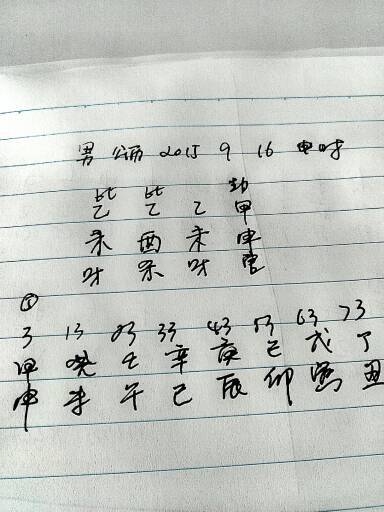 男 公历 2015 9 16 申时
比 比 劫
乙 乙 乙 甲
未 酉 未 申
才 杀 才 官
3 13 23 33 43 53 63 73
甲 癸 壬 辛 庚 己 戊 丁
申 未 午 巳 辰 卯 寅 丑